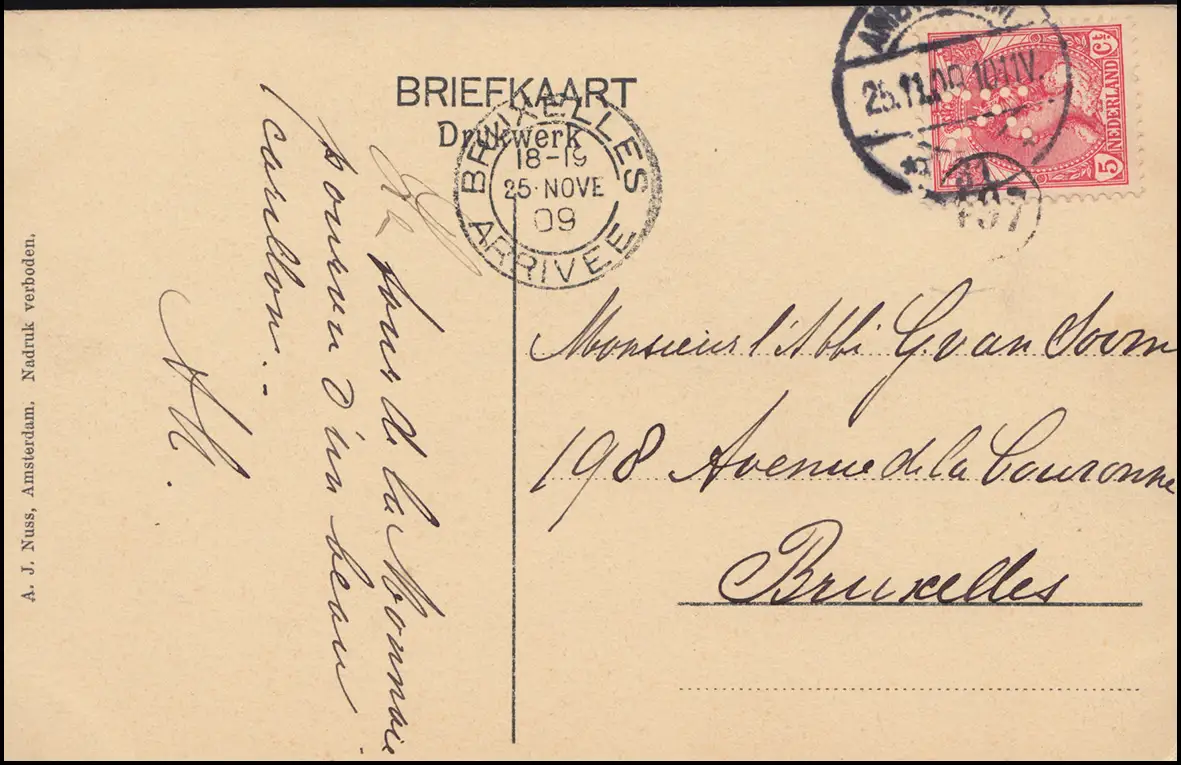 BRIEFKAART
Drukwerk
BRUXELLES
18-19
25 NOVE
09
ARRIVEE
25.11.09. 10-11V.
5 NEDERLAND Ct
La tour de la Monnaie
pourvu d'un beau
carillon. -
A. J. Nuss, Amsterdam. Nadruk verboden.
Monsieur l'Abbé G. van
198 Avenue de la Couronne
Bruxelles